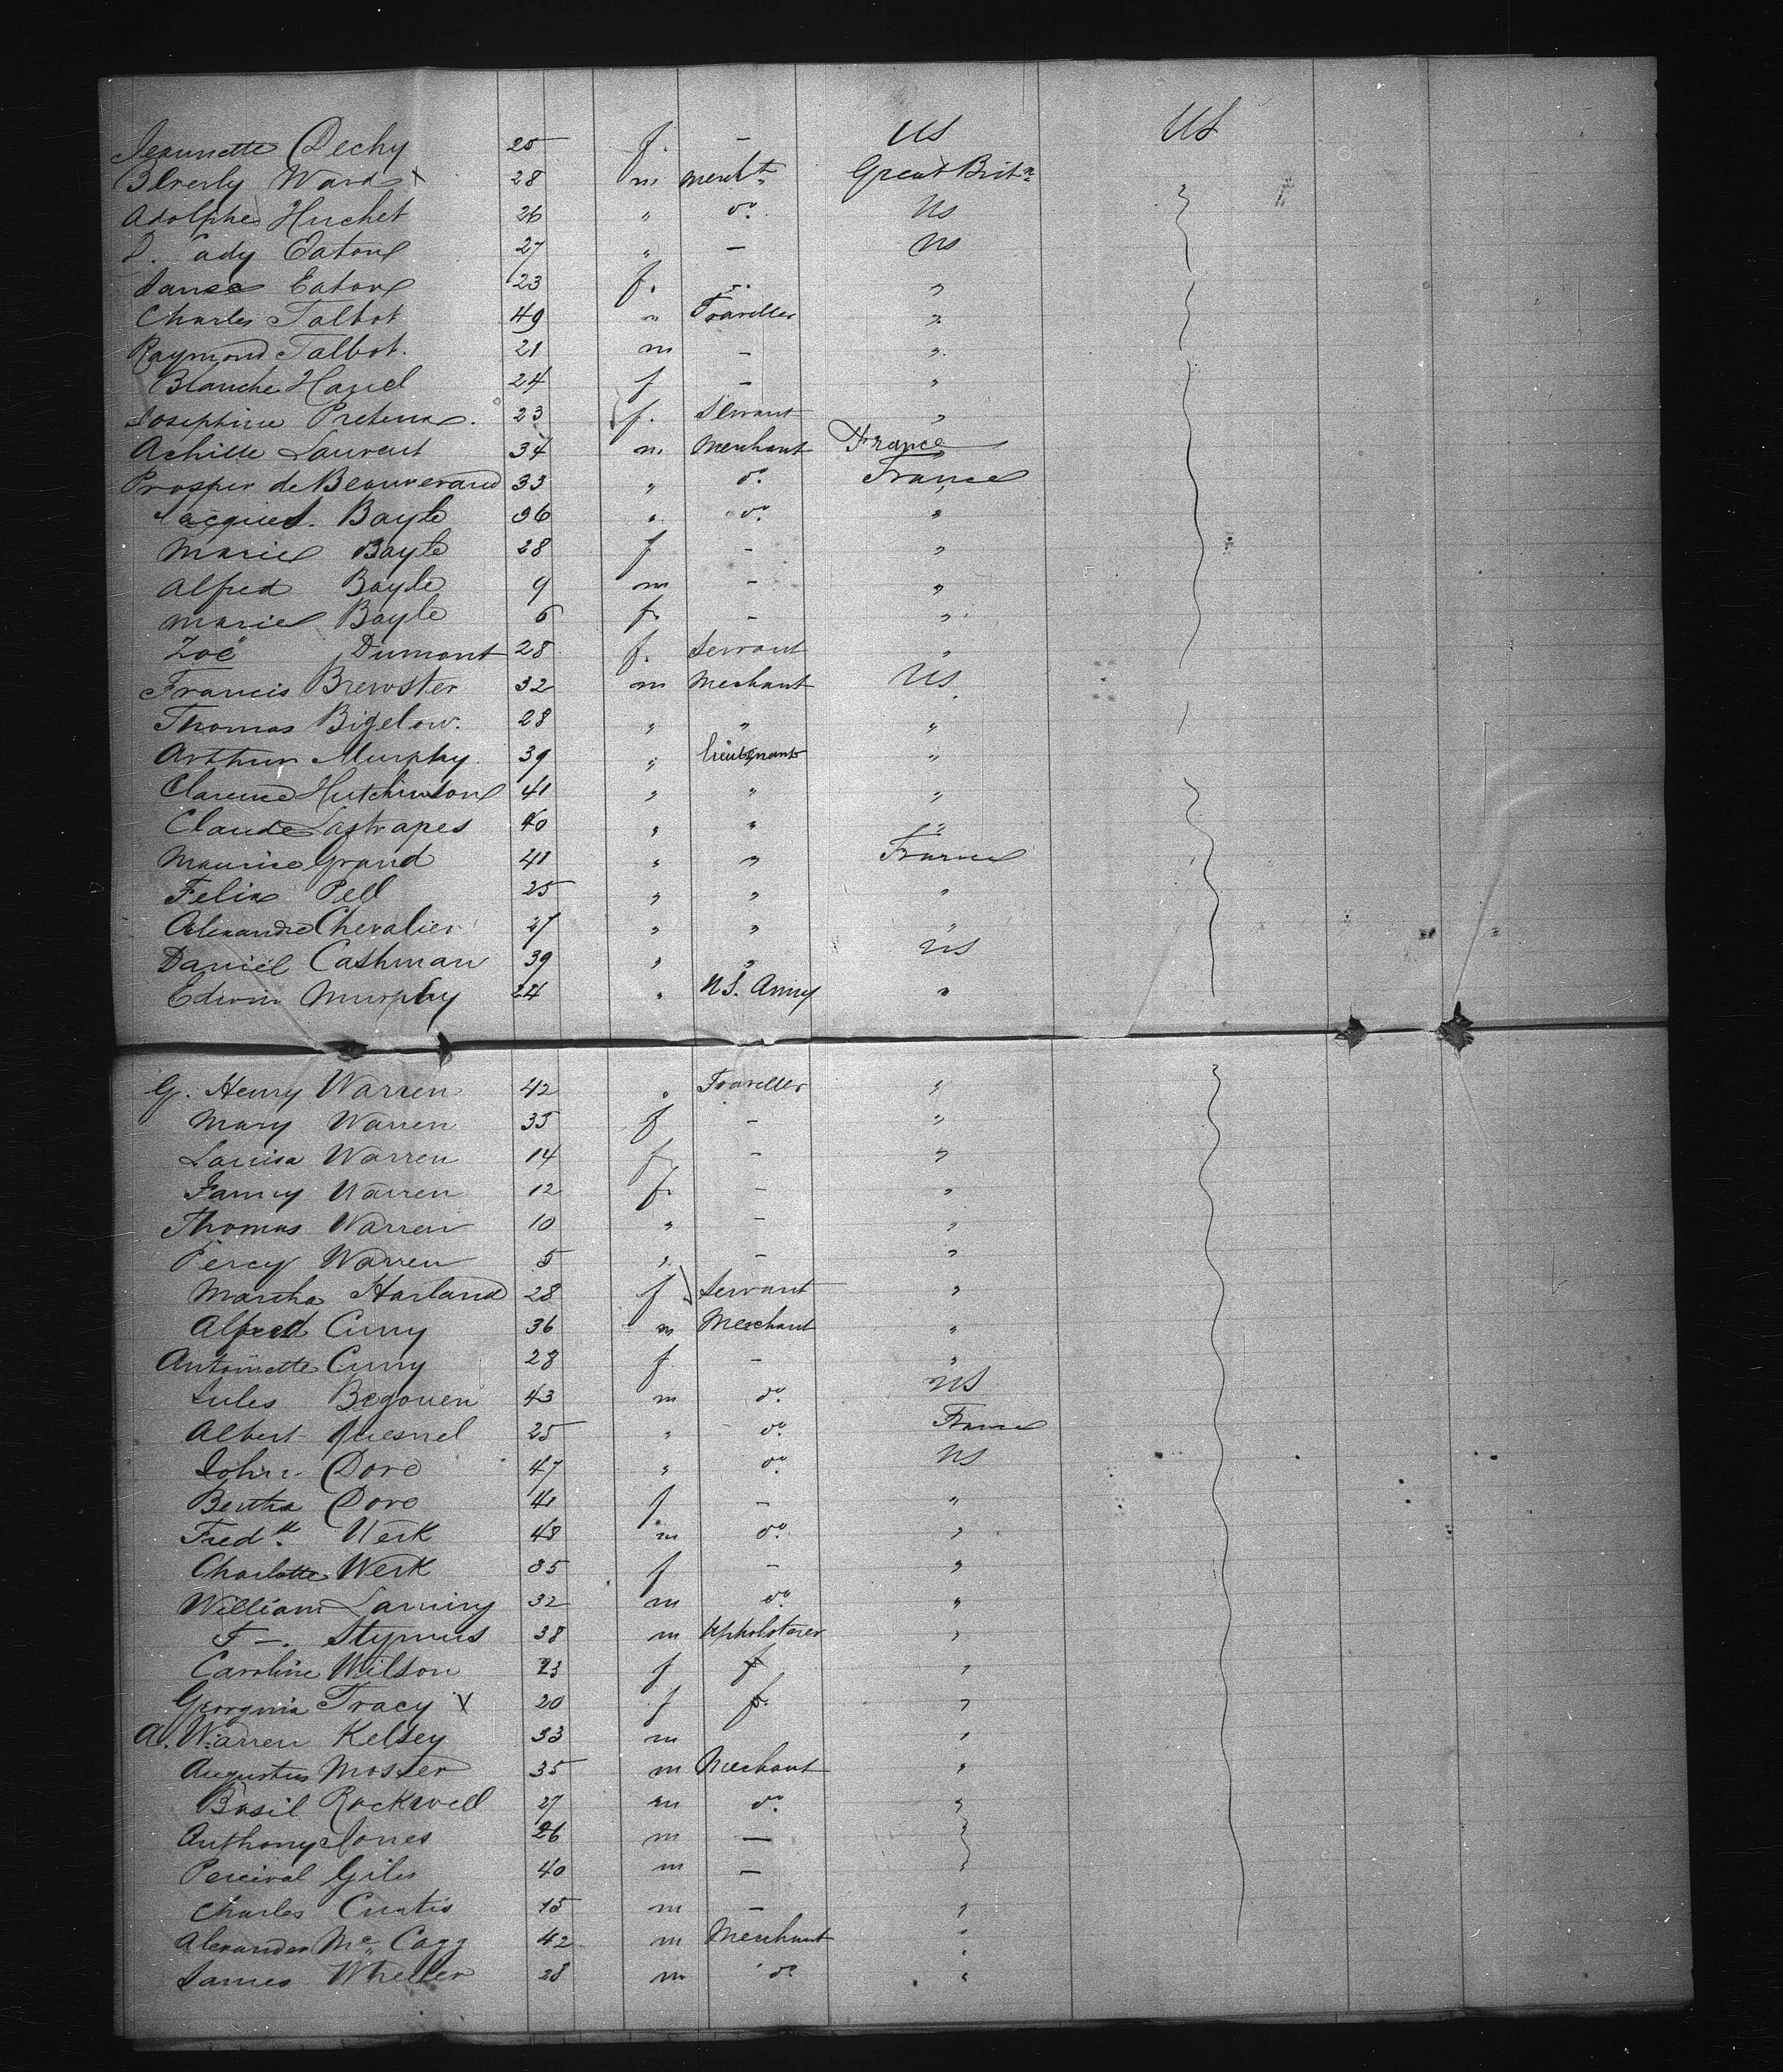 Jeannette Dechy 25 f. — US US
Beverly Ward x 28 m mercht. Great Britn
Adolphe Huchet 26 " do US
D. Cady Eaton 27 " — US
Eaton 23 f. — "
Charles Talbot 49 " Traveller "
Raymond Talbot. 21 m — "
Blanche Hand 24 f — "
Josephine 23 f. Servant "
Achille Laurent 34 m. Merchant France
Prosper de Beauverand 33 " do France
Jacques. Bayle 36 " do "
Marie Bayle 28 f - "
Alfred Bayle 9 m - "
Marie Bayle 6 f. - "
Zoé Dumont 28 f. Servant "
Francis Brewster 32 m Merchant US
Thomas Bigelow. 28 " " "
Arthur Murphy 39 " lieutenant "
Clarence Hutchinson 41 " " "
Claude Lastrapes 40 " " "
Maurice Grand 41 " " France
Felix Pell 25 " " "
Alexandre Chevalier 27 " " "
Daniel Cashman 39 " " US
Edwin Murphy 24 " U.S. Army "
G. Henry Warren 42 " Traveller "
Mary Warren 35 f — "
Louisa Warren 14 f - "
Fanny Warren 12 f. - "
Thomas Warren 10 " - "
Percy Warren 5 " - "
Martha Harland 28 f Servant "
Alfred Cuny 36 m Merchant "
Antoinette Cuny 28 f. - "
Jules Begouen 43 m do US
Albert Quesnel 25 " do France
John Dord 47 " do US
Bertha Dord 41 f — "
Fredk. Werk 48 m do "
Charlotte Werk 35 f - "
William Laning 32 m do "
F —. Stymus 38 m Upholsterer "
Caroline Wilson 23 f f "
Georgina Tracy X 20 f f. "
A. Warren Kelsey 33 m "
Augustus Moster 35 m Merchant "
Basil Rockwell 27 m do "
Anthony Jones 26 m — "
Percival Giles 40 m — "
Charles Curtis 15 m — "
Alexander Mc Cagg 42 m Merchant "
James Wheeler 28 m do "